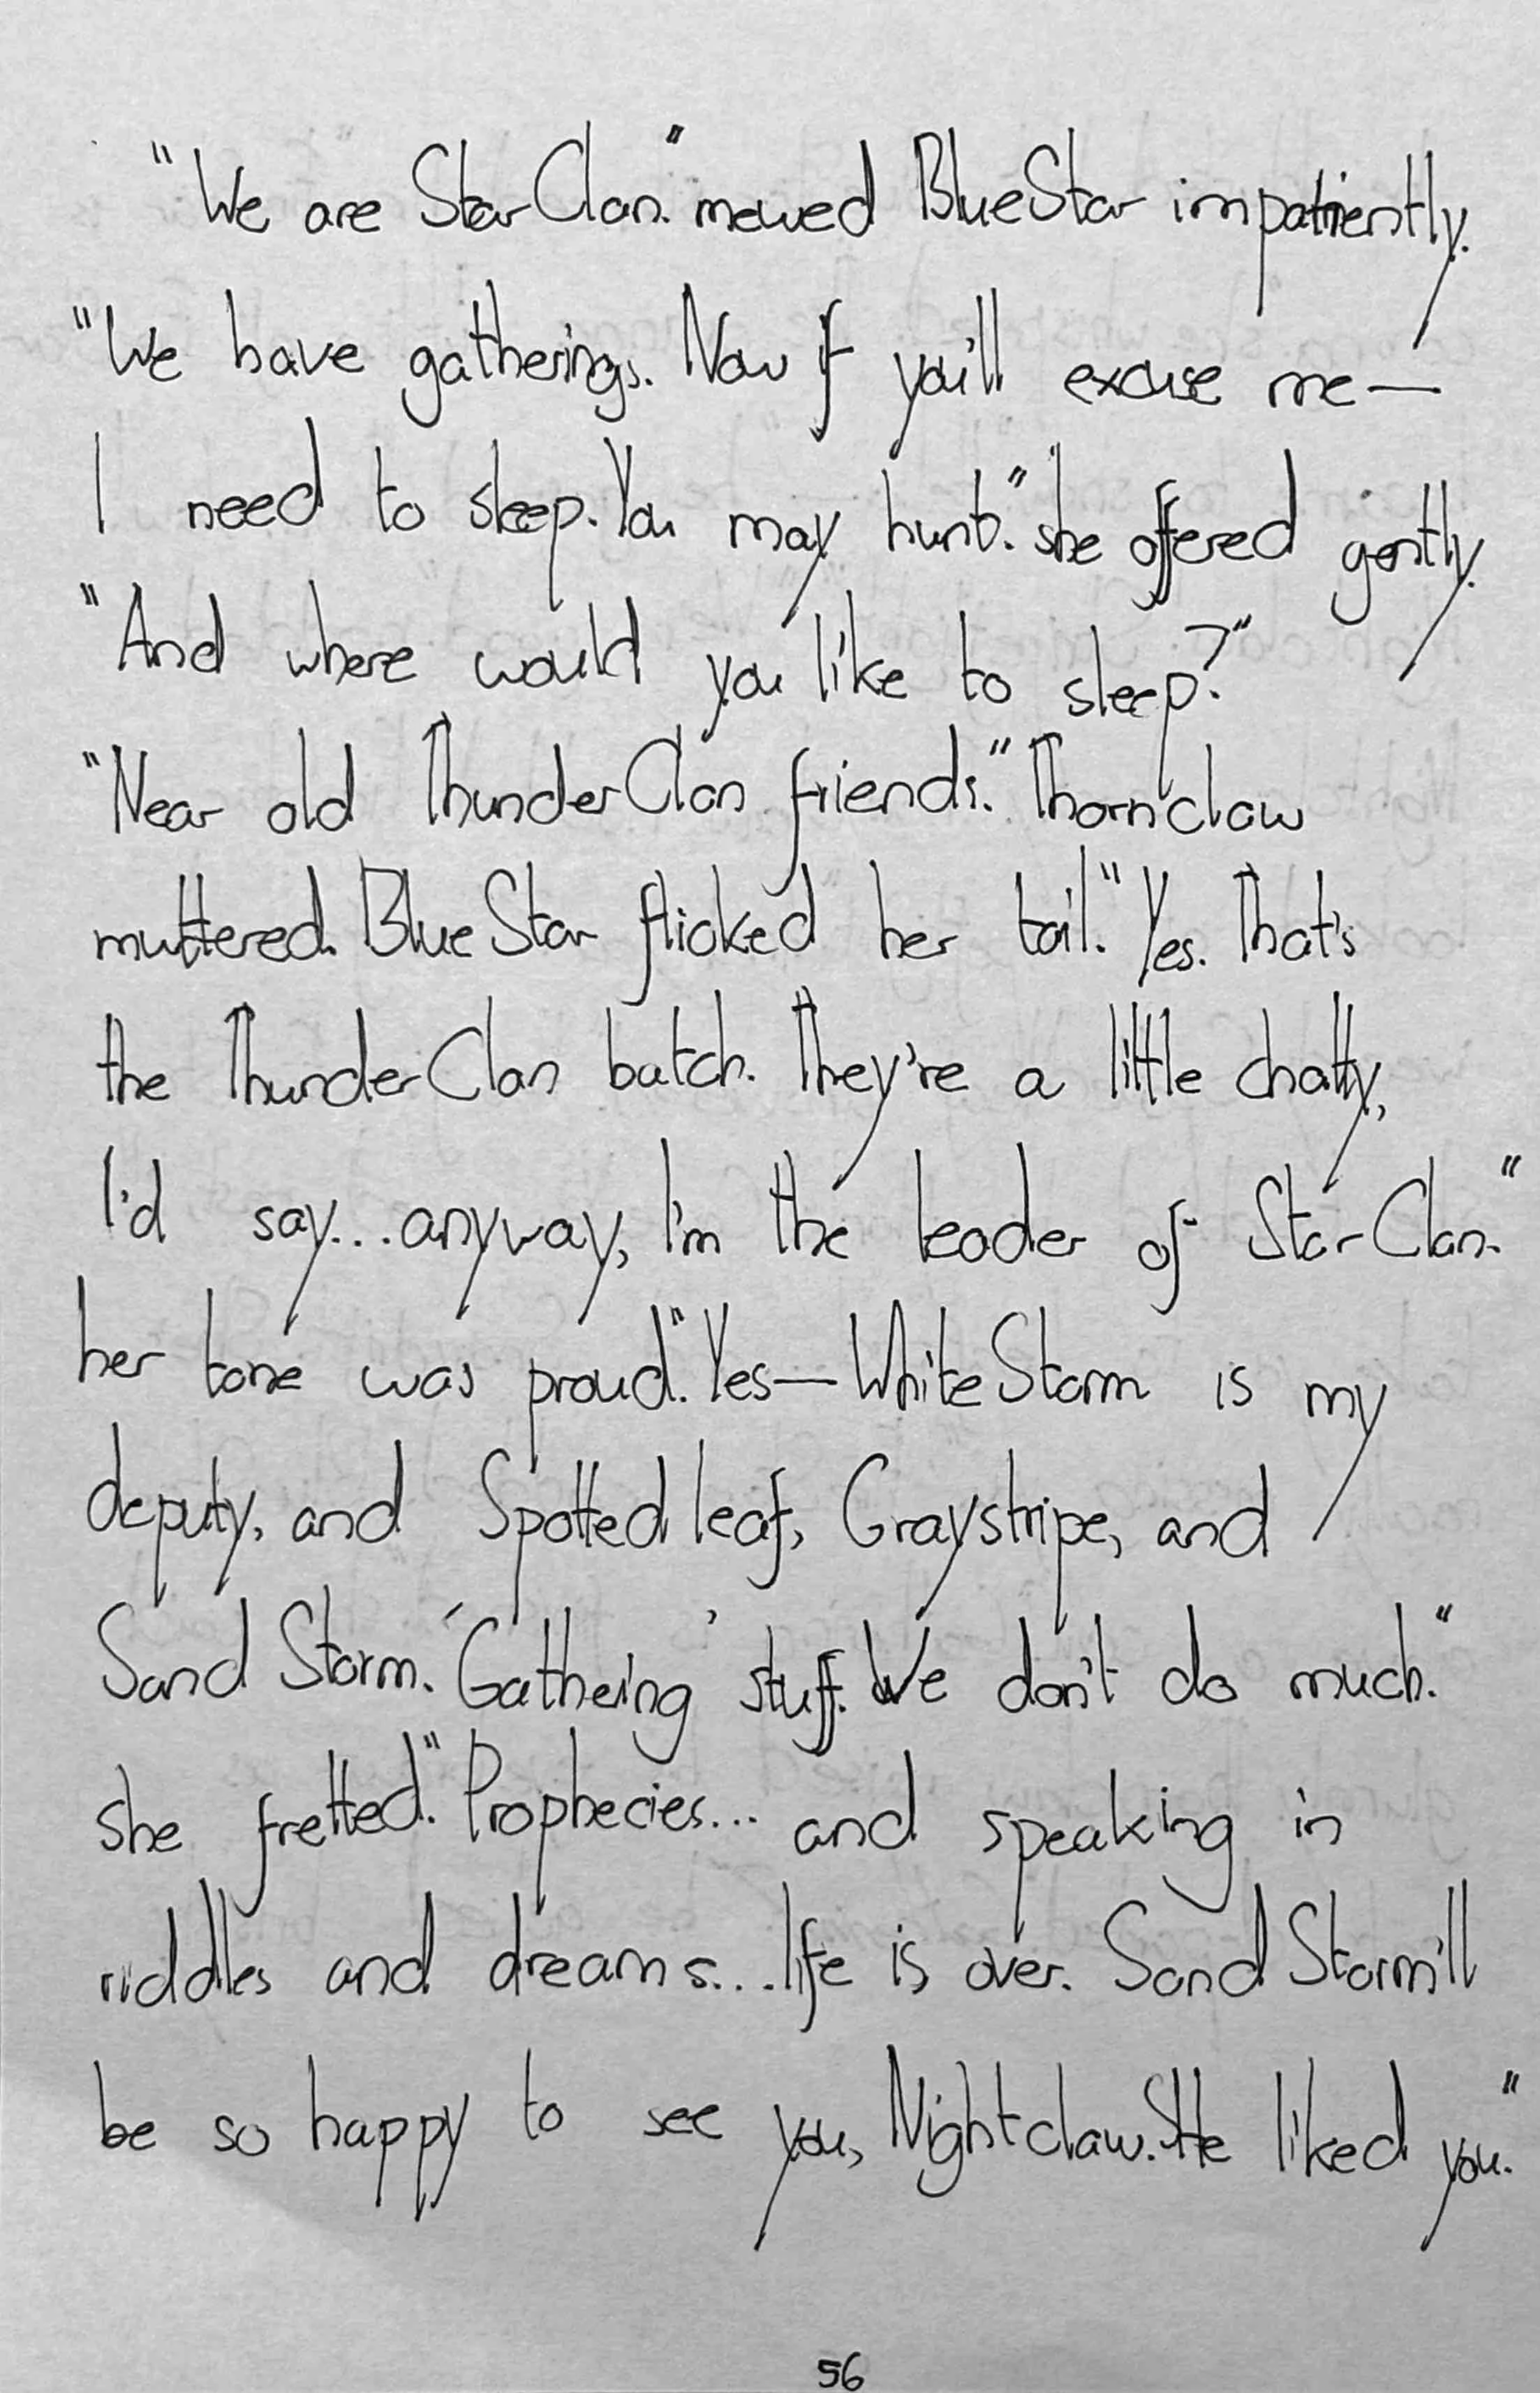 "We are StarClan." mewed BlueStar impatiently.
"We have gatherings. Now if you'll excuse me—
I need to sleep. You may hunt." she offered gently.
"And where would you like to sleep?"
"Near old ThunderClan friends." Thornclaw
muttered. BlueStar flicked her tail. "Yes. That's
the ThunderClan batch. They're a little chatty,
I'd say... anyway, I'm the leader of StarClan."
her tone was proud. "Yes—WhiteStorm is my
deputy, and Spottedleaf, Graystripe, and
SandStorm. 'Gathering' stuff. We don't do much."
she fretted. "Prophecies... and speaking in
riddles and dreams... life is over. SandStorm'll
be so happy to see you, Nightclaw. She liked you."
56